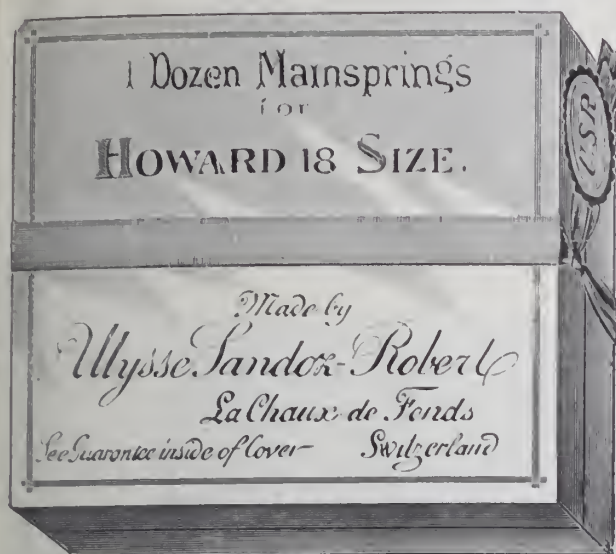 1 Dozen Mainsprings
for
HOWARD 18 SIZE.
USR
Made by
Ulysse Sandoz-Robert
La Chaux-de Fonds
See Guarantee inside of Cover
Switzerland